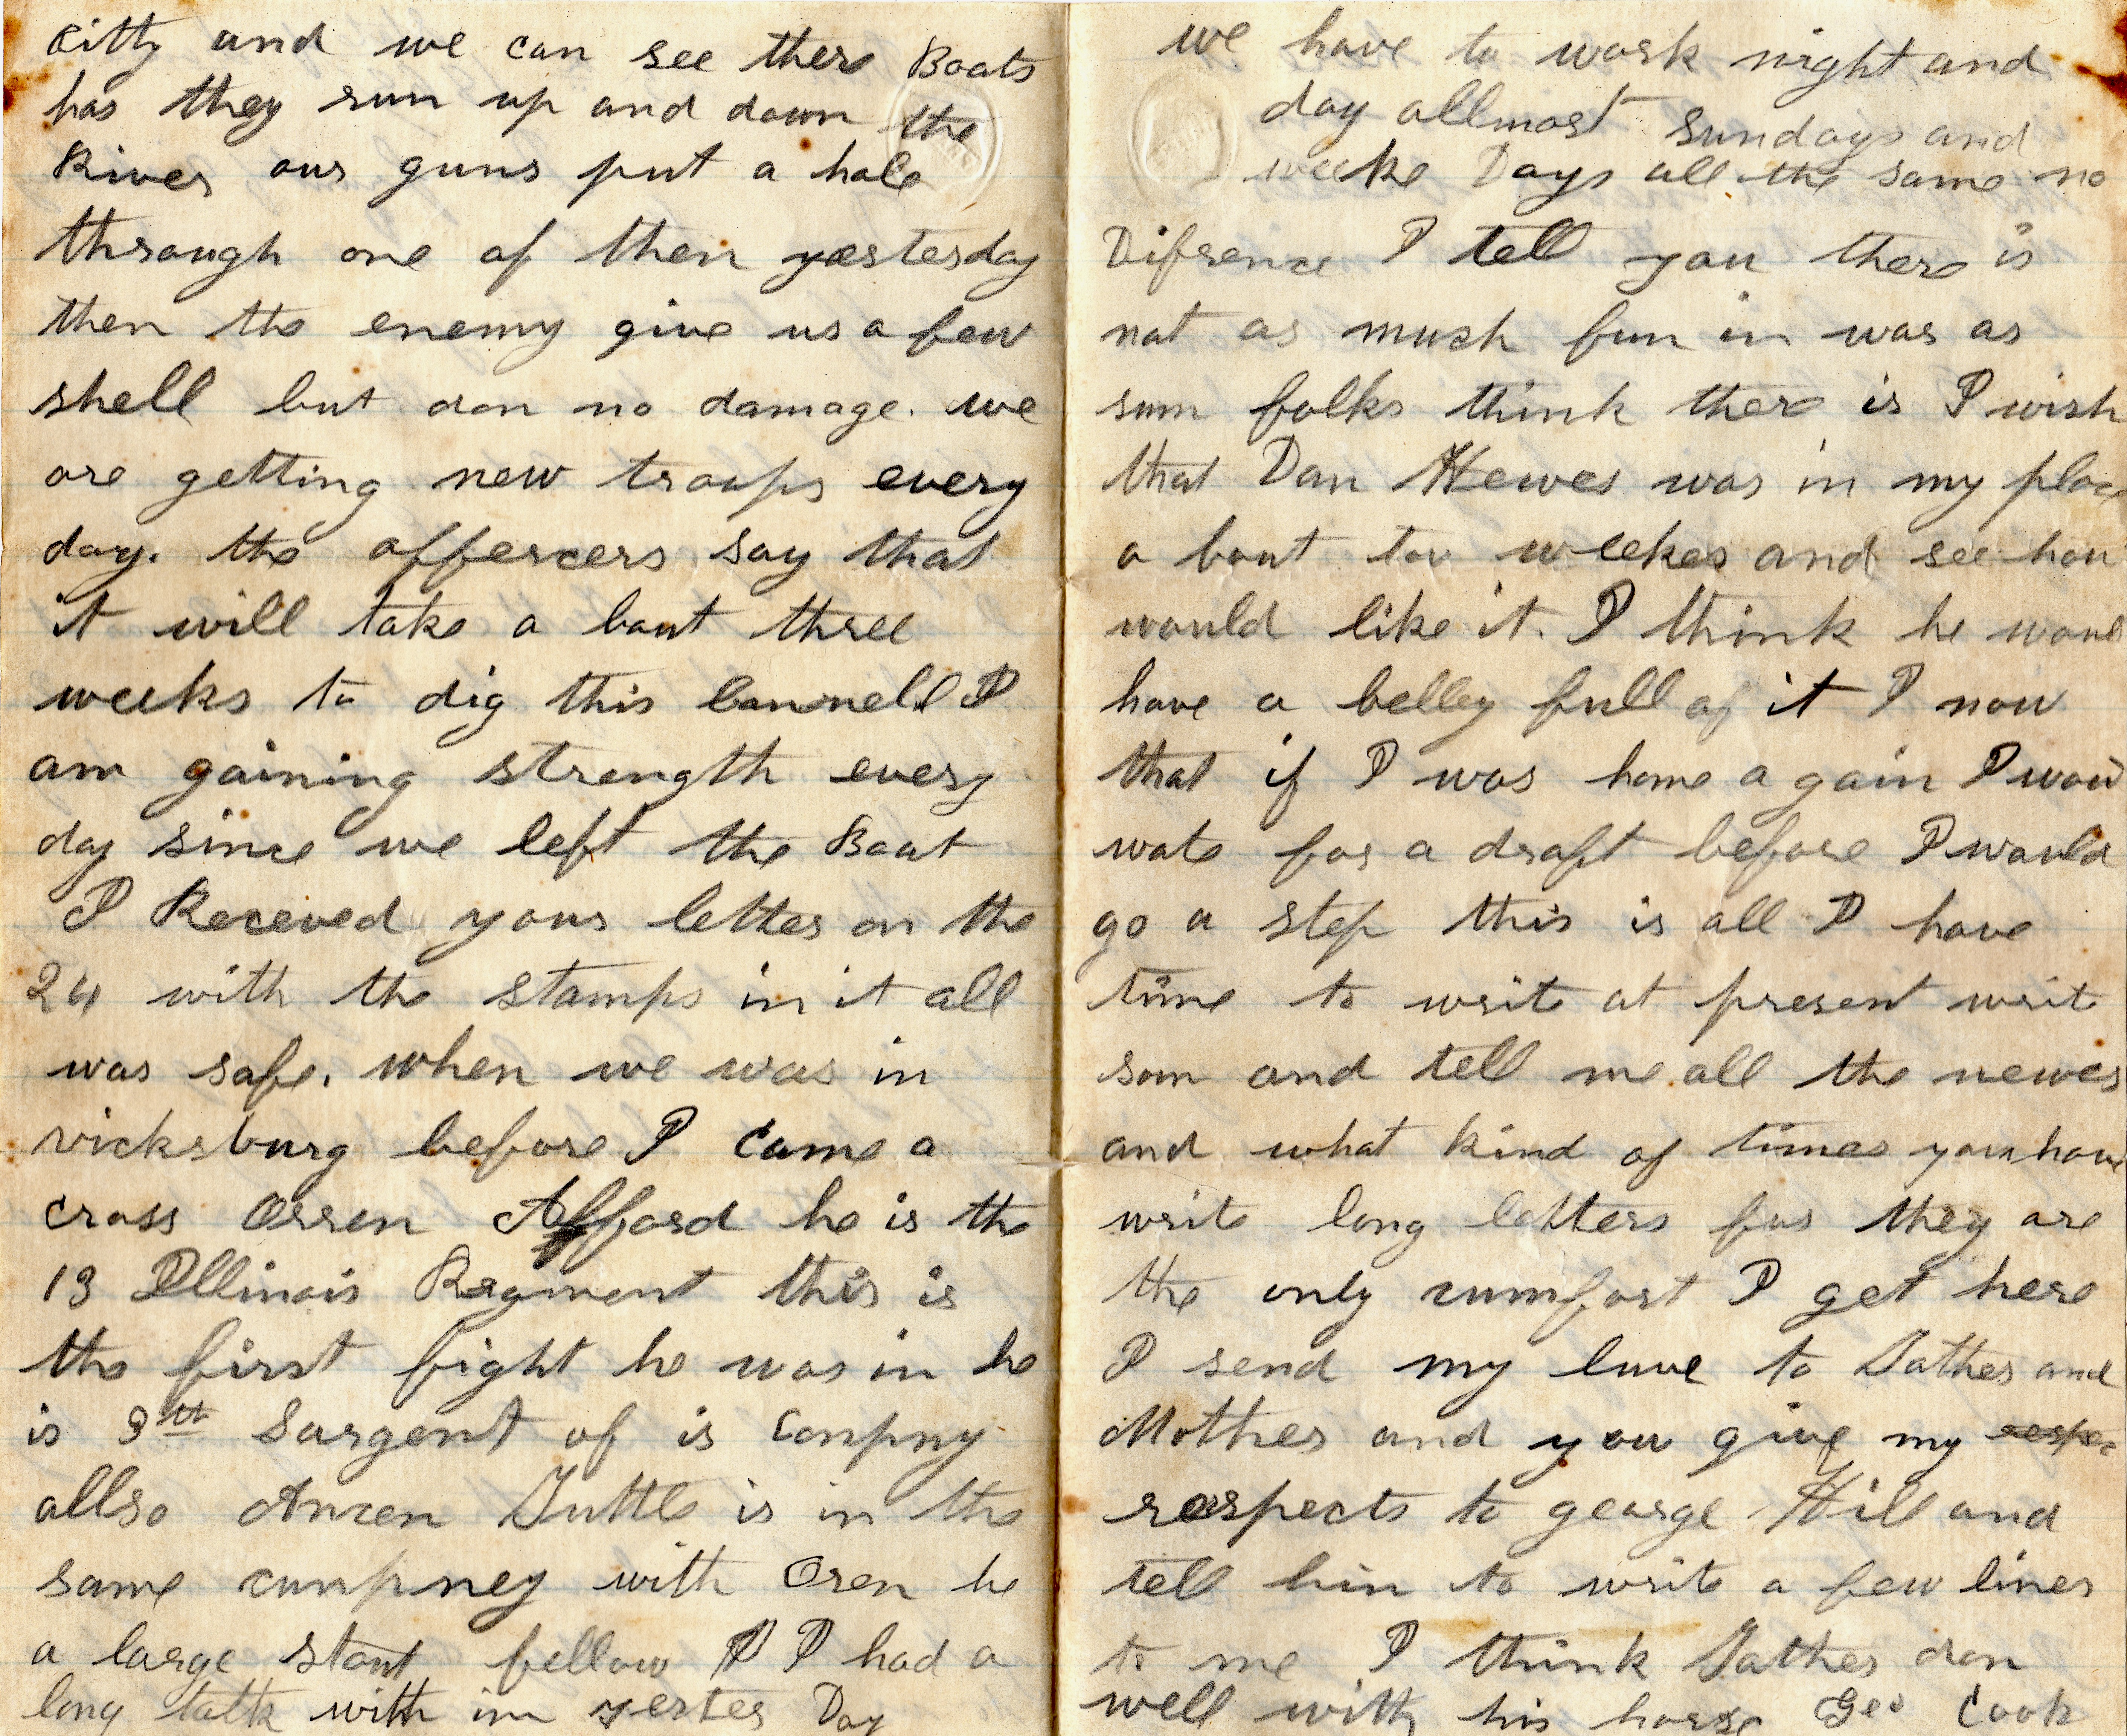 Citty and we can see there Boats
has they run up and down the
River our guns put a hole
through one of then yesterday
then the enemy give us a few
shell but don no damage. we
are getting new troops every
day. the offercers say that
it will take a bout three
weeks to dig this cannell I
am gaining strength every
day since we left the Boat
I Receved your letter on the
24 with the stamps in it all
was safe. when we was in
vicksburg before I came a
cross Orren Afford he is the
13 Illinois Regment this is
the first fight he was in he
is 3th Sargent of is Conpny
allso Anren Tuttle is in the
same cunpney with Oren he
a large stout fellow I I had a
long talk with im yester Day
we have to work night and
day allmost sundays and
weeke Days all the same no
Difrence I tell you there is
not as much fun in war as
sum folks think there is I wish
that Dan Hewes was in my place
a bout tow weekes and see how
would like it. I think he woul
have a belley full of it I now
that if I was home a gain I wou
wate for a draft before I would
go a step this is all I have
time to write at present write
soon and tell me all the newes
and what kind of times you have
write long letters for they are
the only cumfort I get here
I send my luve to Father and
Mother and you give my respec
respects to george Hill and
tell him to write a few lines
to me I think Father don
well with his horse Geo Cook